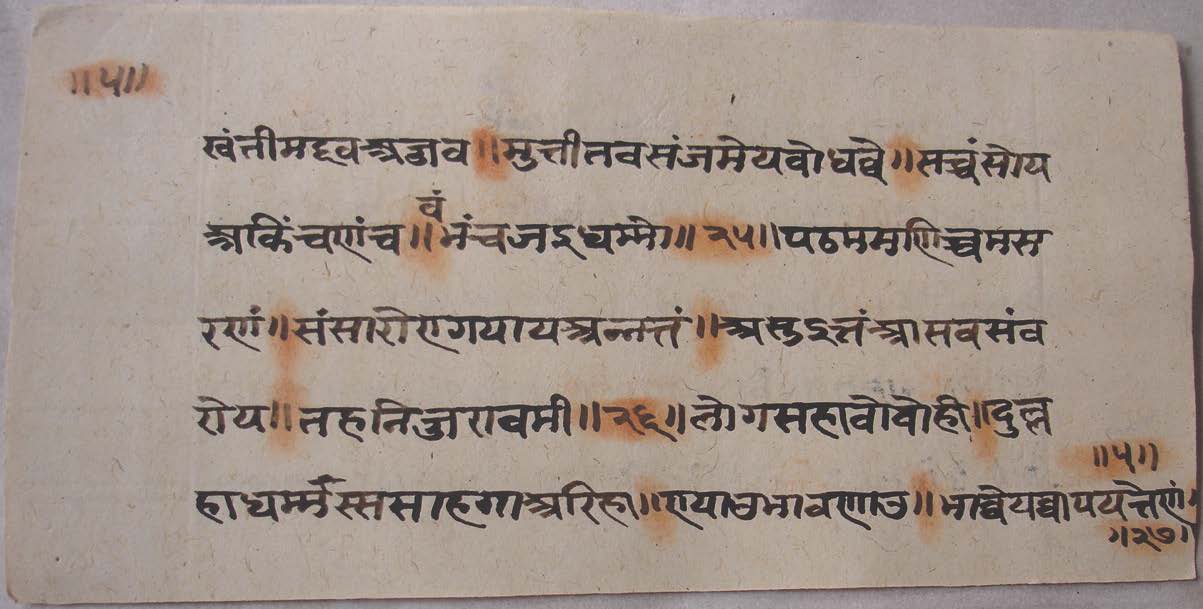 ॥५॥
खंतीमद्दवअज्जव॥मुत्तीतवसंजमेयबोधव्वे॥सच्चंसोय
अकिंचणंच॥बंभंचजइधम्मो॥२५॥पढममणिच्चमस
रणं॥संसारोएगयायअन्नत्तं॥असुइत्तंआसवसंव
रोय॥तहनिज्जरानवमी॥२६॥लोगसहावोबोही॥दुल्ल
हाधर्म्मस्ससाहगाअरिहा॥एयाउभावणाउ॥भावेयव्वापयत्तेणं
॥५॥
॥२७॥